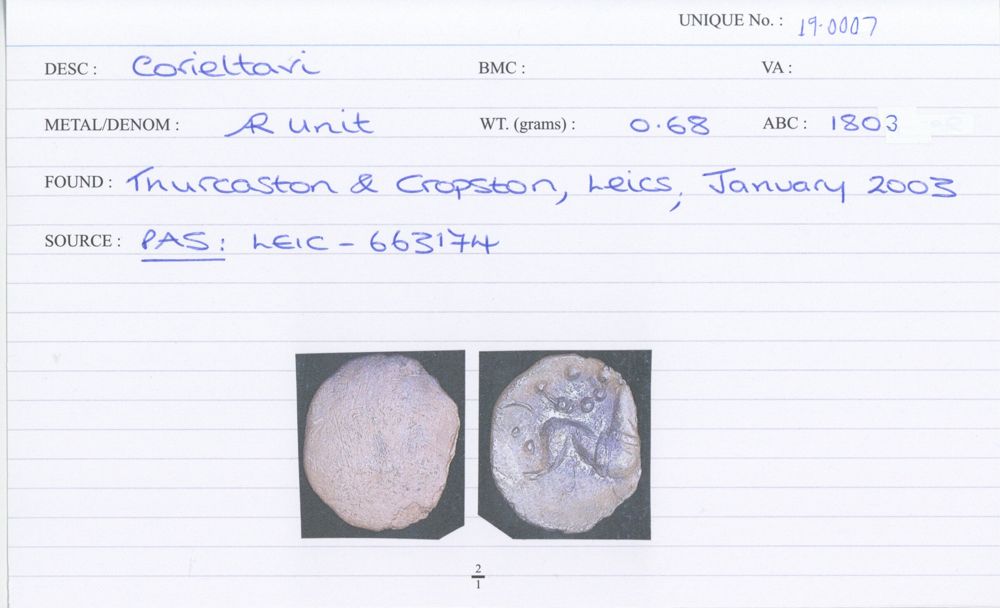 UNIQUE No. : 19-0007
DESC : Corieltavi BMC : VA :
METAL/DENOM : AR Unit WT. (grams) : 0.68 ABC : 1803
FOUND : Thurcaston & Cropston, Leics, January 2003
SOURCE : PAS: LEIC - 663174
2
1